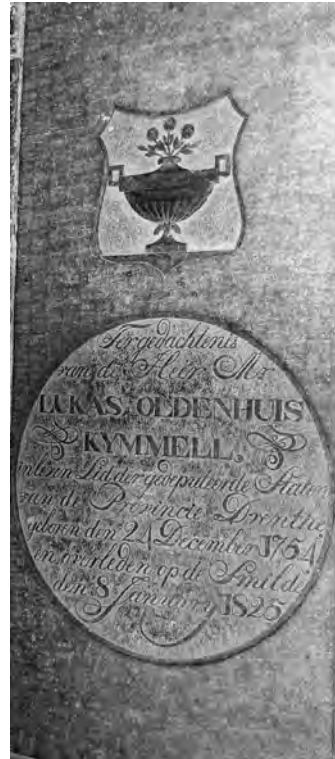 Ter gedachtenis
van de Heer Mr
LUKAS, OLDENHUIS
KYMMELL,
in leven Lid der gedeputeerde Staten
van de Provincie Drenthe
geboren den 24 December 1754
en overleden op de Smilde
den 8 January 1825